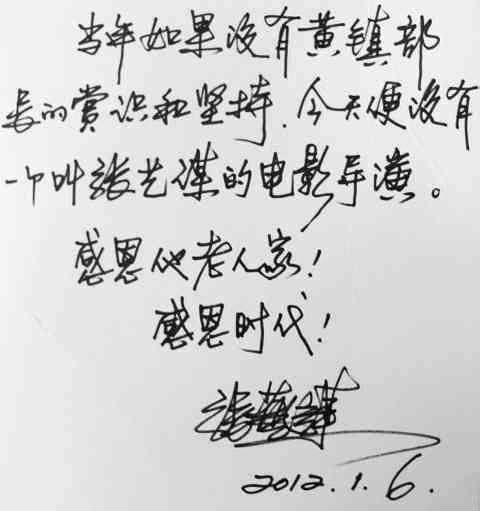 当年如果没有黄镇部
长的赏识和坚持、今天便没有
一个叫张艺谋的电影导演。
感恩他老人家！
感恩时代！
张艺谋
2012.1.6.